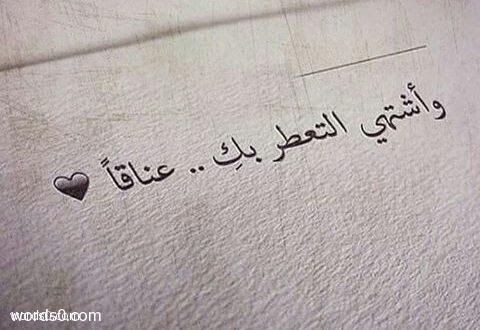 وأشتهي التعطر بكِ .. عناقاً ♥
words0.com